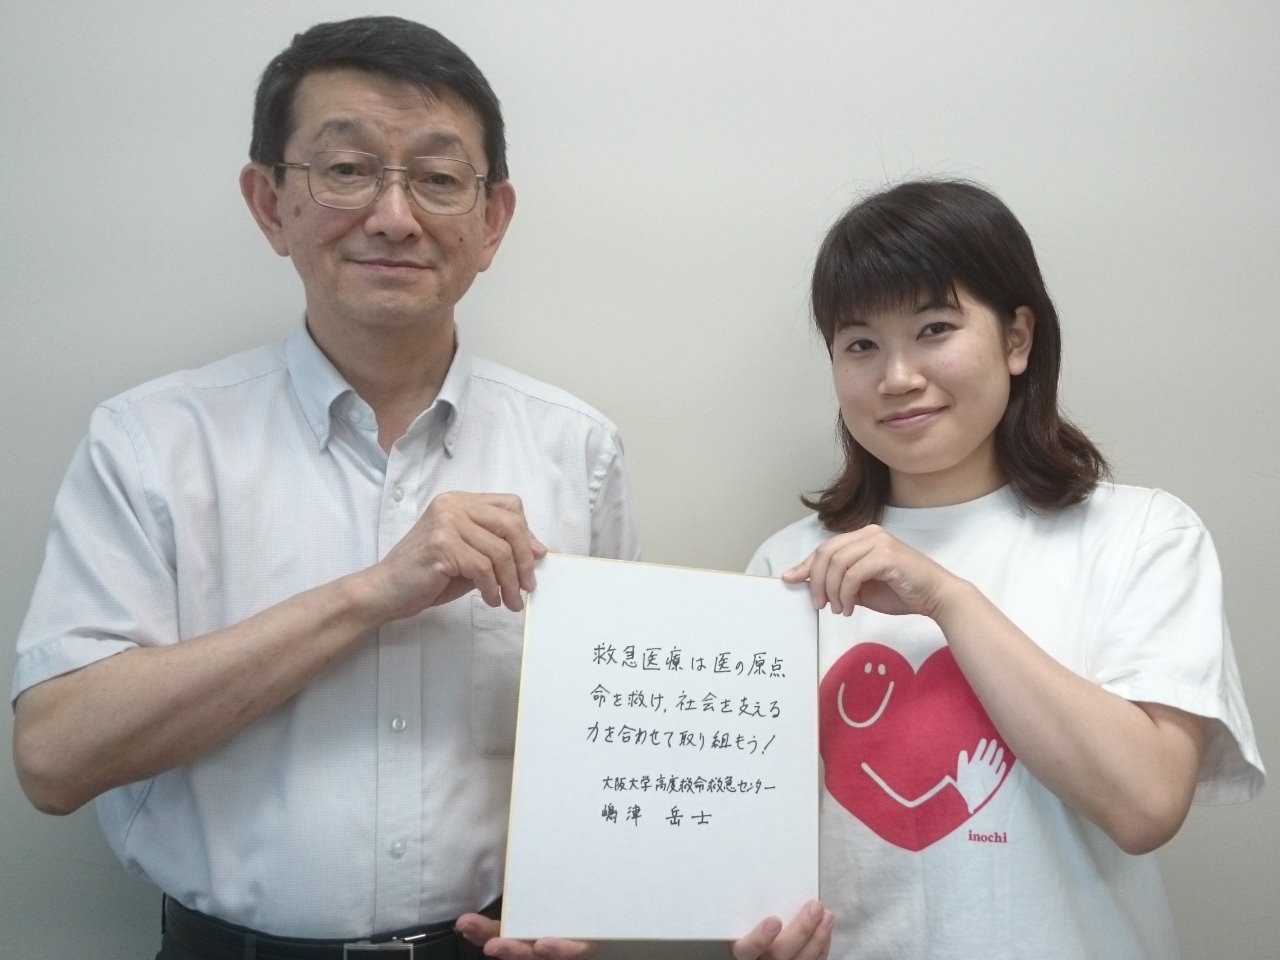 救急医療は医の原点
命を救け,社会を支える
力を合わせて取り組もう!
大阪大学高度救命救急センター
嶋津 岳士
inochi